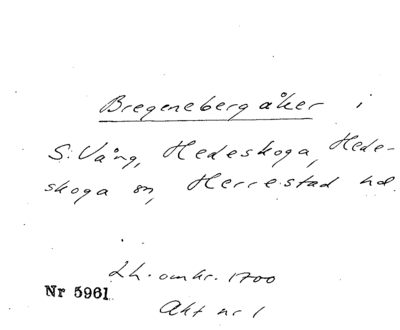 Bregenebergåker i
S. Vång, Hedeskoga, Hede-
skoga sn, Herrestad hd.
Lh. omkr. 1700
Nr 5961
Akt nr 1